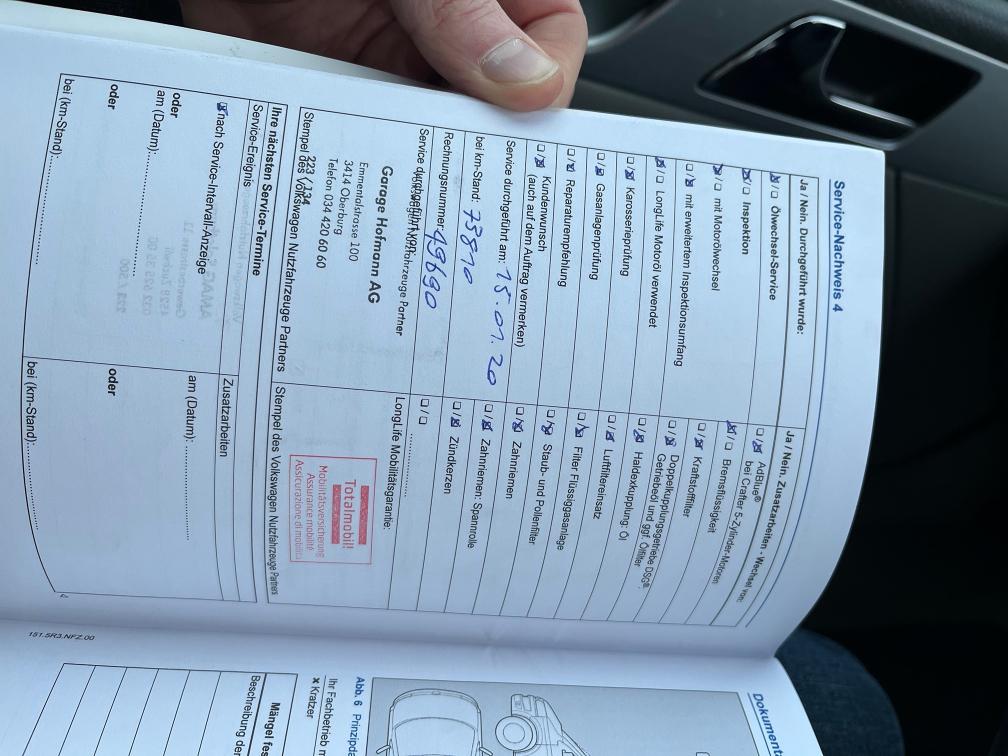 Service-Nachweis 4
Ja / Nein. Durchgeführt wurde:
☒/☐ Ölwechsel-Service
☒/☐ Inspektion
☒/☐ mit Motorölwechsel
☐/☒ mit erweitertem Inspektionsumfang
☒/☐ LongLife Motoröl verwendet
☐/☒ Karosserieprüfung
☐/☒ Gasanlagenprüfung
☐/☒ Reparaturempfehlung
☐/☒ Kundenwunsch
(auch auf dem Auftrag vermerken)
Service durchgeführt am: 15.01.20
bei km-Stand: 73810
Rechnungsnummer: 49690
Service durchgeführt von:
Nutzfahrzeuge Partner
Garage Hofmann AG
Emmentalstrasse 100
3414 Oberburg
Telefon 034 420 60 60
223 / 134
Stempel des Volkswagen Nutzfahrzeuge Partners
Ja / Nein. Zusatzarbeiten - Wechsel von:
☐/☒ AdBlue®
bei Crafter 5-Zylinder-Motoren
☒/☐ Bremsflüssigkeit
☐/☒ Kraftstofffilter
☐/☒ Doppelkupplungsgetriebe DSG®:
Getriebeöl und ggf. Ölfilter
☐/☒ Haldexkupplung: Öl
☐/☒ Luftfiltereinsatz
☐/☒ Filter Flüssiggasanlage
☐/☒ Staub- und Pollenfilter
☐/☒ Zahnriemen
☐/☒ Zahnriemen: Spannrolle
☐/☒ Zündkerzen
☐/☐
LongLife Mobilitätsgarantie:
Totalmobil!
Mobilitätsversicherung
Assurance mobilité
Assicurazione di mobilità
Stempel des Volkswagen Nutzfahrzeuge Partners
Ihre nächsten Service-Termine
Service-Ereignis
☒ nach Service-Intervall-Anzeige
oder
am (Datum):
oder
bei (km-Stand):
Zusatzarbeiten
am (Datum):
oder
bei (km-Stand):
151.5R3.NFZ.00
Abb. 6
Ihr Fachbetrieb
x Kratzer
Mängel
Beschreibung der